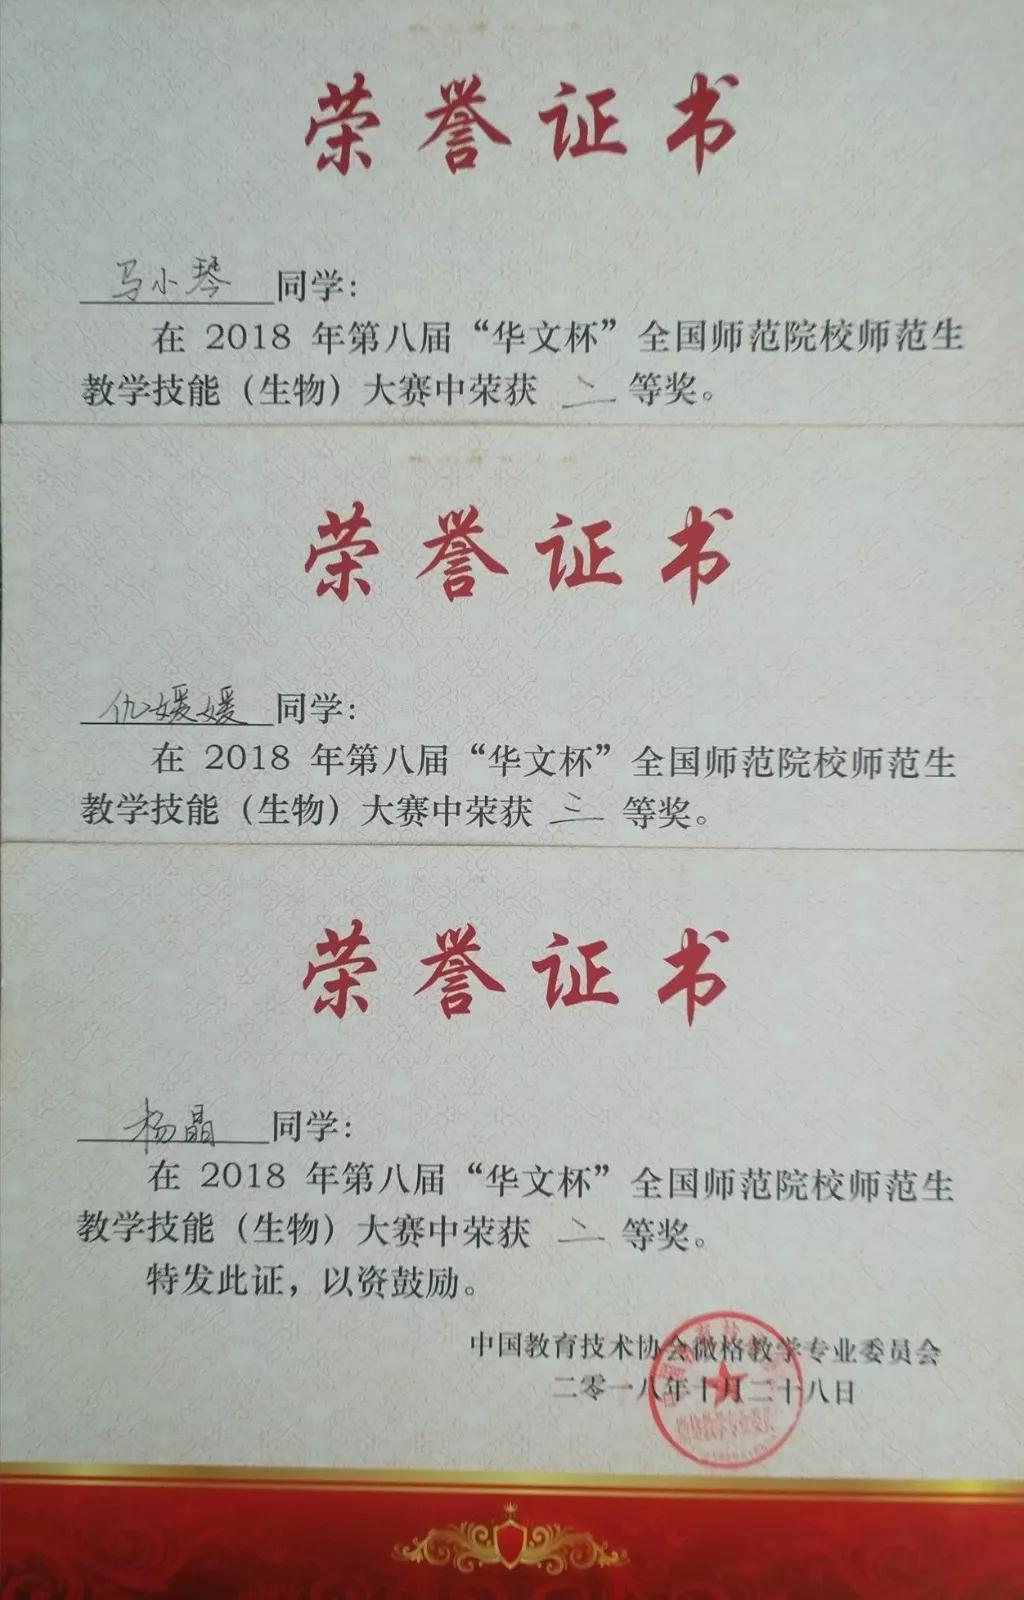 荣誉证书
马小琴同学：
在 2018 年第八届“华文杯”全国师范院校师范生
教学技能（生物）大赛中荣获 二 等奖。
荣誉证书
仇媛媛同学：
在 2018 年第八届“华文杯”全国师范院校师范生
教学技能（生物）大赛中荣获 三 等奖。
荣誉证书
杨晶同学：
在 2018 年第八届“华文杯”全国师范院校师范生
教学技能（生物）大赛中荣获 二 等奖。
特发此证，以资鼓励。
中国教育技术协会微格教学专业委员会
二零一八年十月二十八日